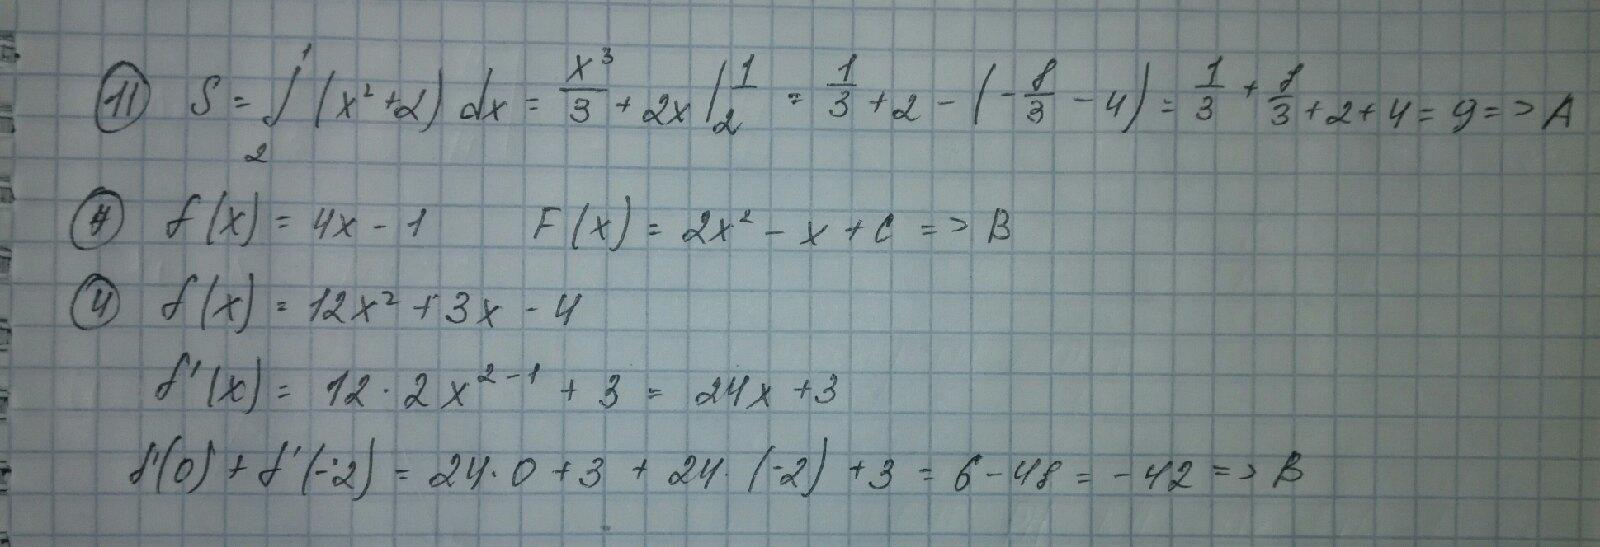 11 S = ∫₂¹ (x² + 2) dx = x³/3 + 2x |₂¹ = 1/3 + 2 - (-8/3 - 4) = 1/3 + 8/3 + 2 + 4 = 9 => A
7 f(x) = 4x - 1 F(x) = 2x² - x + C => B
4 f(x) = 12x² + 3x - 4
f'(x) = 12 · 2x²⁻¹ + 3 = 24x + 3
f'(0) + f'(-2) = 24 · 0 + 3 + 24 · (-2) + 3 = 6 - 48 = -42 => B